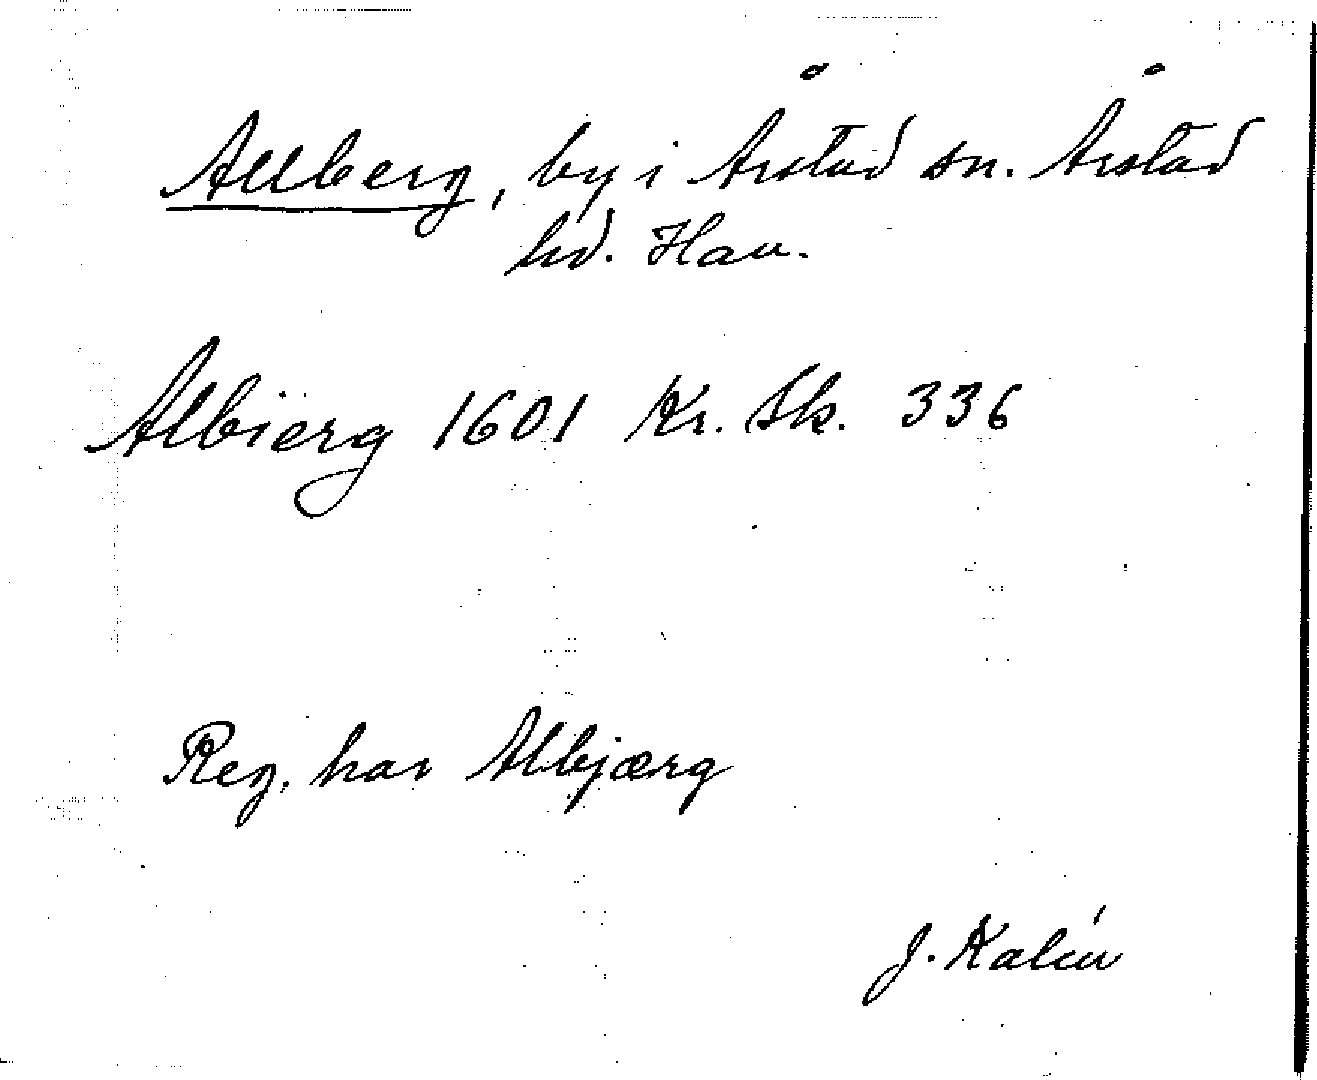 Allberg, by i Årstad sn. Årstad
hd. Hall.
Albierg 1601 Kr. Sk. 336
Reg. har Albjærg
J. Kalén